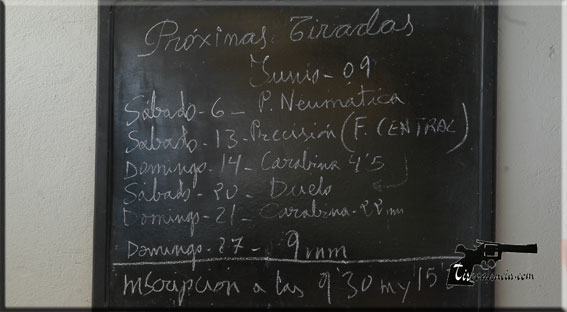 Próximas Tiradas
Junio - 09
Sábado - 6 - P. Neumática
Sábado - 13 - Precisión (F. CENTRAL)
Domingo - 14 - Carabina 4'5
Sábado - 20 - Duelo
Domingo - 21 - Carabina - 22 mm
Domingo - 27 - 9 mm
Inscripción a las 9'30 m y 15